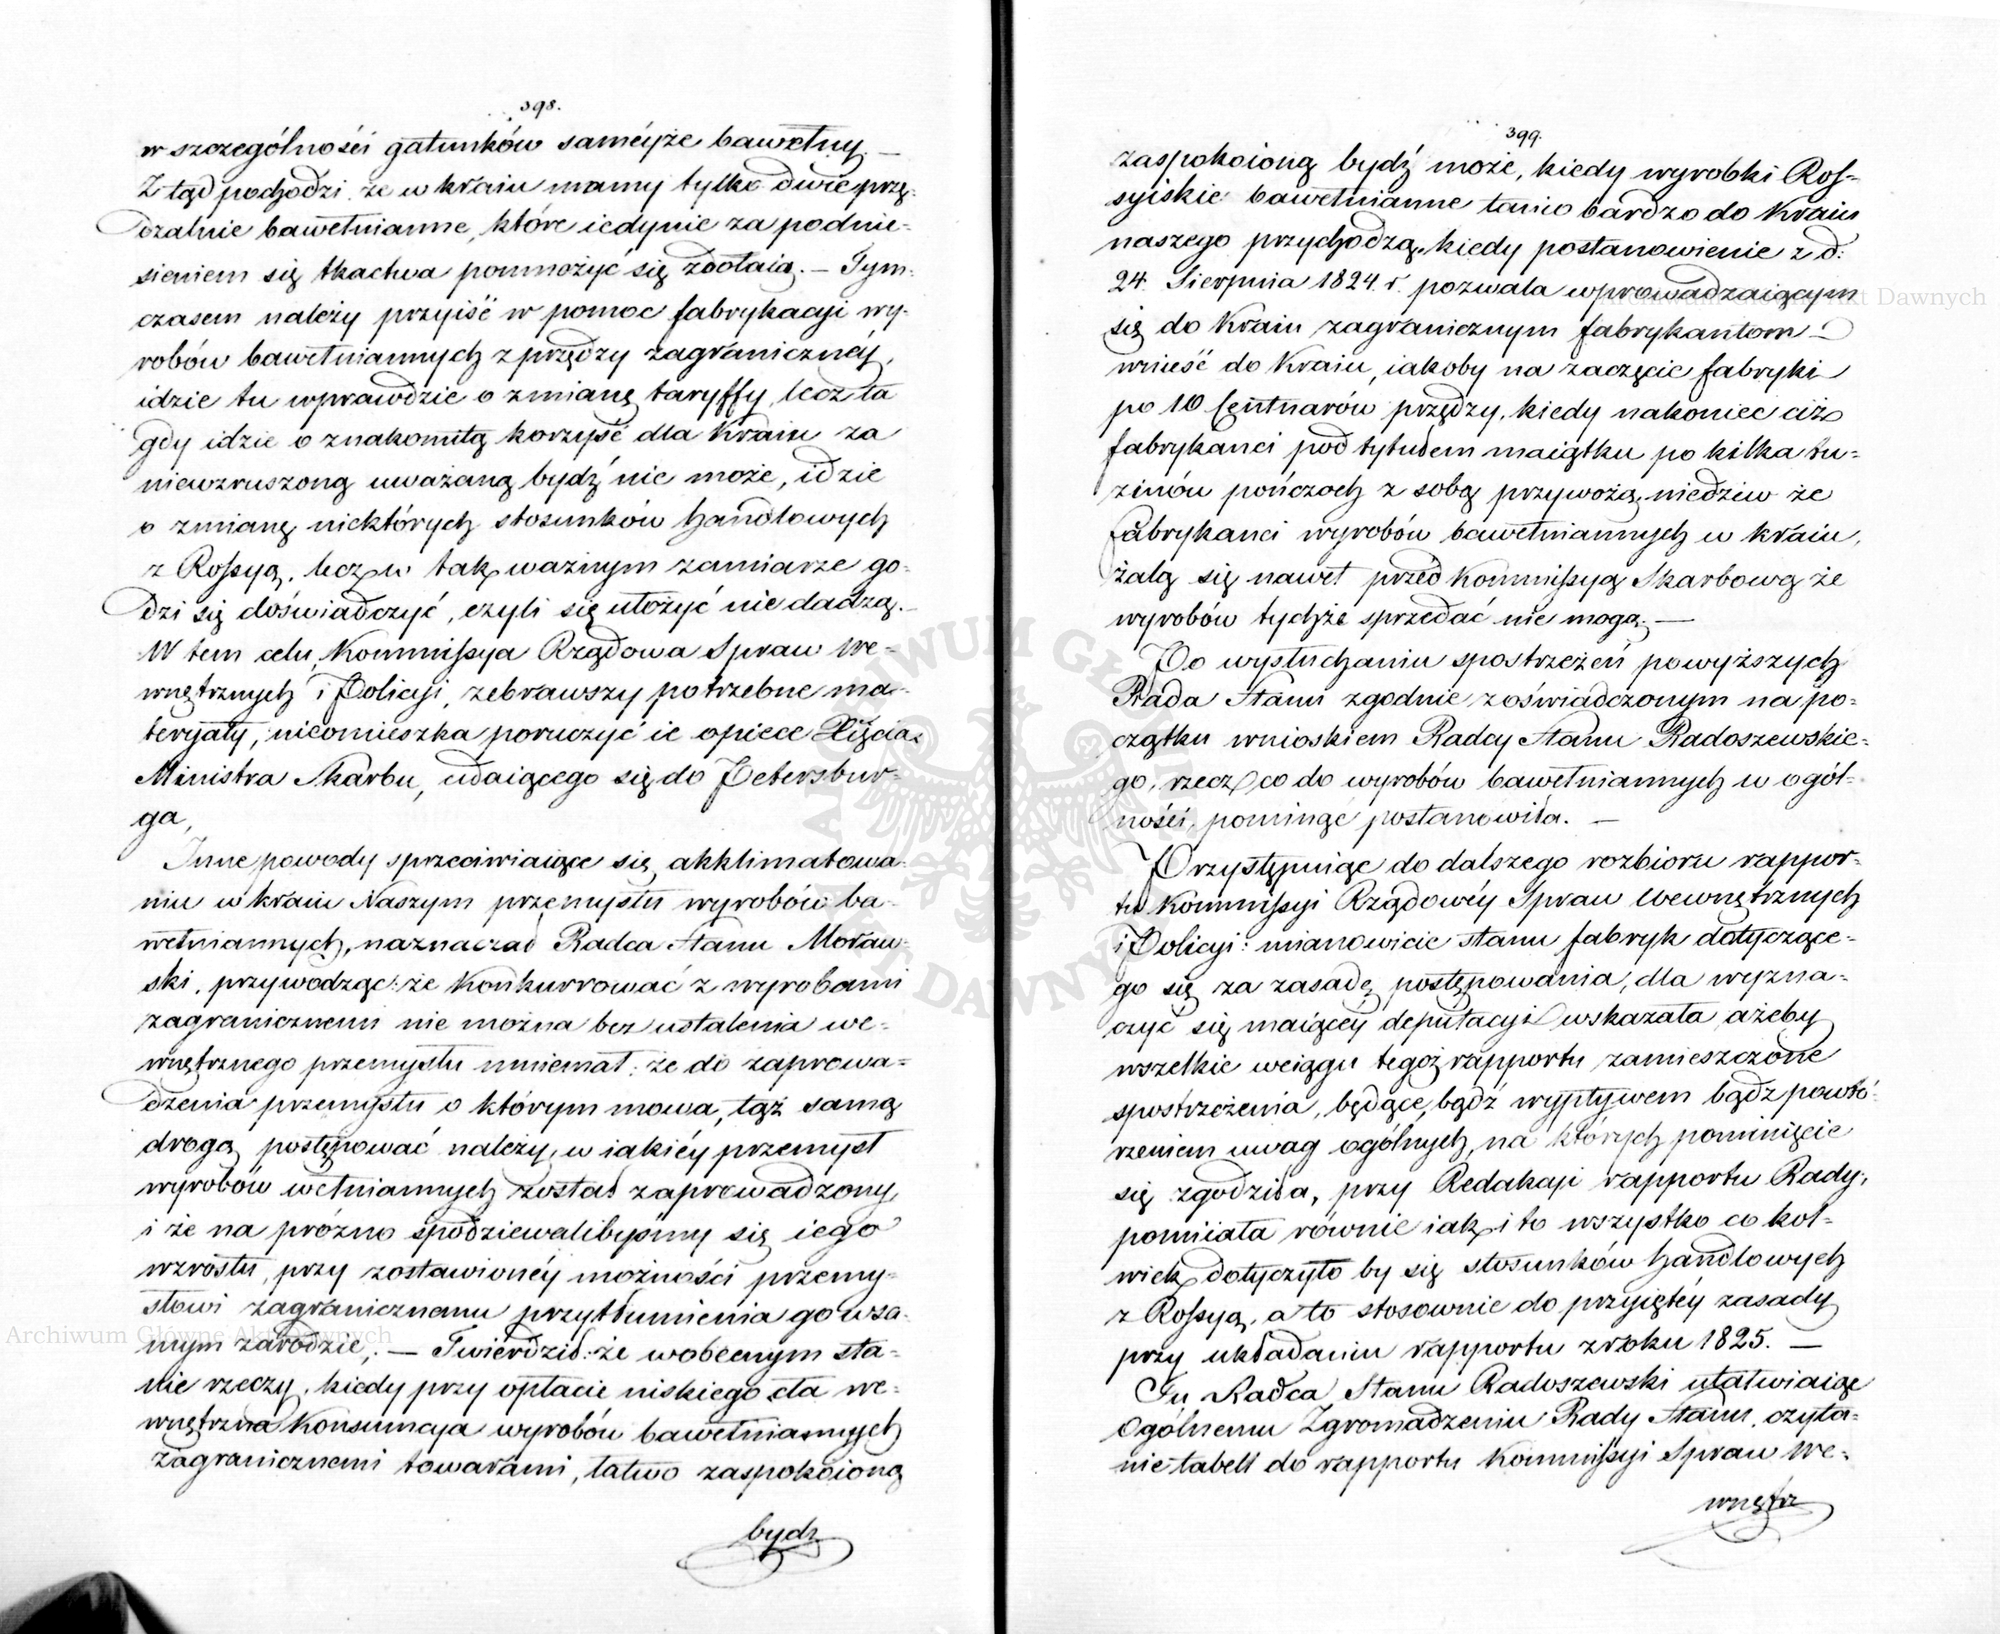 398.
w szczególności gatunków saméyże bawełny. —
Z tąd pochodzi że w kraiu mamy tylko dwie przę-
dzalnie bawełnianne, które iedynie za podnie-
sieniem się tkactwa pomnożyć się zdołaią. — Tym-
czasem należy przyiść w pomoc fabrykacyi wy-
robów bawełniannych z przędzy zagranicznéy,
idzie tu wprawdzie o zmianę taryffy, lecz ta
gdy idzie o znakomitą korzyść dla Kraiu za
niewzruszoną uważaną bydź nie może, idzie
o zmianę niektórych stosunków handlowych
z Rossyą, lecz w tak ważnym zamiarze go-
dzi się doświadczyć, czyli się ułożyć nie dadzą. —
W tem celu Kommissya Rządowa Spraw We-
wnętrznych i Policyi, zebrawszy potrzebne ma-
teryały, nieomieszka poruczyć ie opiece Xięcia
Ministra Skarbu, udaiącego się do Petersbur-
ga,
Inne powody sprzeciwiaiące się akklimatowa-
niu w kraiu Naszym przemysłu wyrobów ba-
wełniannych, naznaczał Radca Stanu Moraw-
ski, przywodząc: że konkurrować z wyrobami
zagranicznemi nie można bez ustalenia we-
wnętrznego przemysłu mniemał: że do zaprowa-
dzenia przemysłu o którym mowa, tąż samą
drogą postępować należy, w iakiéy przemysł
wyrobów wełniannych został zaprowadzony,
i że na próżno spodziewalibyśmy się iego
wzrostu, przy zostawionéy możności przemy-
słowi zagranicznemu przytłumienia go w sa-
mym zarodzie, — Twierdził: że w obecnym sta-
nie rzeczy, kiedy przy opłacie niskiego cła we-
wnętrzna Konsumcya wyrobów bawełniannych
zagranicznemi towarami, łatwo zaspokoioną
bydz
399.
zaspokoioną bydź może, kiedy wyrobki Ros-
syiskie bawełnianne tanio bardzo do Kraiu
naszego przychodzą, kiedy postanowienie z d.
24. Sierpnia 1824. r. pozwala wprowadzaiącym
się do Kraiu zagranicznym fabrykantom
wnieść do Kraiu, iakoby na zaczęcie fabryki
po 10 Centnarów przędzy, kiedy nakoniec ciż
fabrykanci pod tytułem maiątku po kilka tu-
zinów pończoch z sobą przywożą, niedziw że
fabrykanci wyrobów bawełniannych w kraiu,
żalą się nawet przed Kommissyą Skarbową że
wyrobów tychże sprzedać nie mogą. —
Po wysłuchaniu spostrzeżeń powyższych
Rada Stanu zgodnie z oświadczonym na po-
czątku wnioskiem Radcy Stanu Radoszewskie-
go, rzecz co do wyrobów bawełniannych w ogól-
ności, pominąć postanowiła. —
Przystępuiąc do dalszego rozbioru rappor-
tu Kommissyi Rządowéy Spraw Wewnętrznych
i Policyi: mianowicie stanu fabryk dotyczące-
go się za zasadę postępowania, dla wyzna-
czyć się maiącéy deputacyi wskazała ażeby
wszelkie w ciągu tegoż rapportu zamieszczone
spostrzeżenia, będące, bądź wypływem bądz powtó-
rzeniem uwag ogólnych, na których pominięcie
się zgodziła, przy Redakcyi rapportu Rady,
pomiiała równie iak i to wszystko co kol-
wiek dotyczyło by się stosunków handlowych
z Rossyą, a to stosownie do przyiętéy zasady
przy układaniu rapportu z roku 1825. —
Tu Radca Stanu Radoszewski ułatwiaiąc
Ogólnemu Zgromadzeniu Rady Stanu, czyta-
nie tabell do rapportu Kommissyi Spraw We-
wnętrz
Archiwum Główne Akt Dawnych